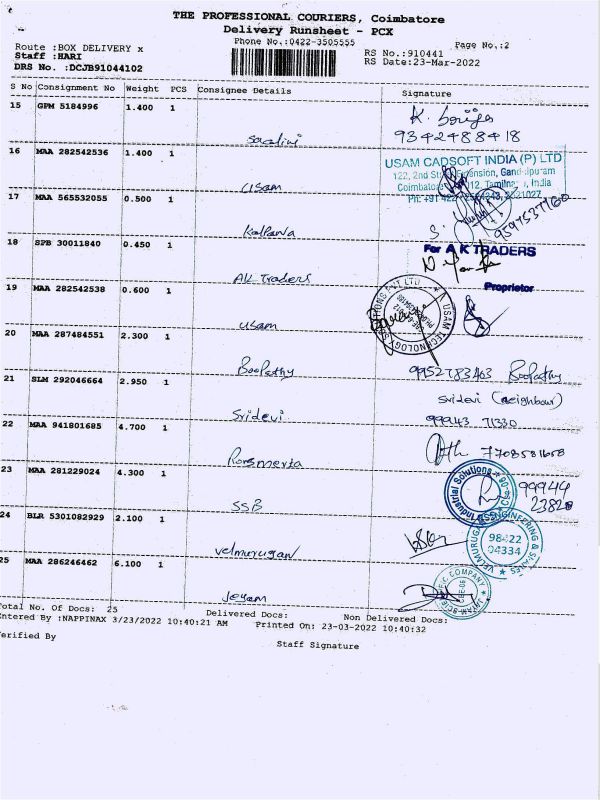 THE PROFESSIONAL COURIERS, Coimbatore
Delivery Runsheet - PCX
Phone No.:0422-3505555
Page No.:2
Route :BOX DELIVERY x
Staff :HARI
DRS No. :DCJB91044102
RS No.:910441
RS Date:23-Mar-2022
S No Consignment No Weight PCS Consignee Details Signature
15 GPM 5184996 1.400 1
K.
9342488418
16 MAA 282542536 1.400 1
USAM CADSOFT INDIA (P) LTD
usam
17 MAA 565532055 0.500 1
9597537760
Kalpana
18 SPB 30011840 0.450 1
For A K TRADERS
AK Traders
Proprietor
19 MAA 282542538 0.600 1
USAM TECHNOLOGY
usam
20 MAA 287484551 2.300 1
Boopathy 9952783463 Boopathy
21 SLM 292046664 2.950 1
Sridevi (neighbour)
Sridevi 99943 71330
22 MAA 941801685 4.700 1
7708581658
Rosmerta
23 MAA 281229024 4.300 1
Industrial Solutions
99944
23820
SSB
24 BLR 5301082929 2.100 1
VELMURUGAN ENGINEERING &
98422
04334
velmurugan
25 MAA 286246462 6.100 1
COMPANY
Jeyam
Total No. Of Docs: 25 Delivered Docs: Non Delivered Docs:
Entered By :NAPPINAX 3/23/2022 10:40:21 AM Printed On: 23-03-2022 10:40:32
Verified By
Staff Signature